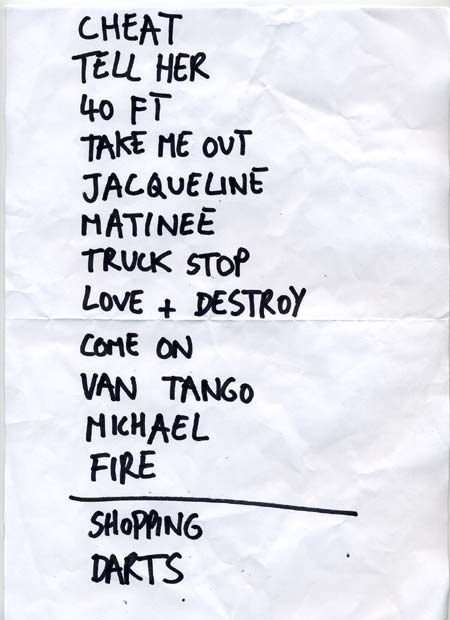 CHEAT
TELL HER
40 FT
TAKE ME OUT
JACQUELINE
MATINEE
TRUCK STOP
LOVE + DESTROY
COME ON
VAN TANGO
MICHAEL
FIRE
SHOPPING
DARTS